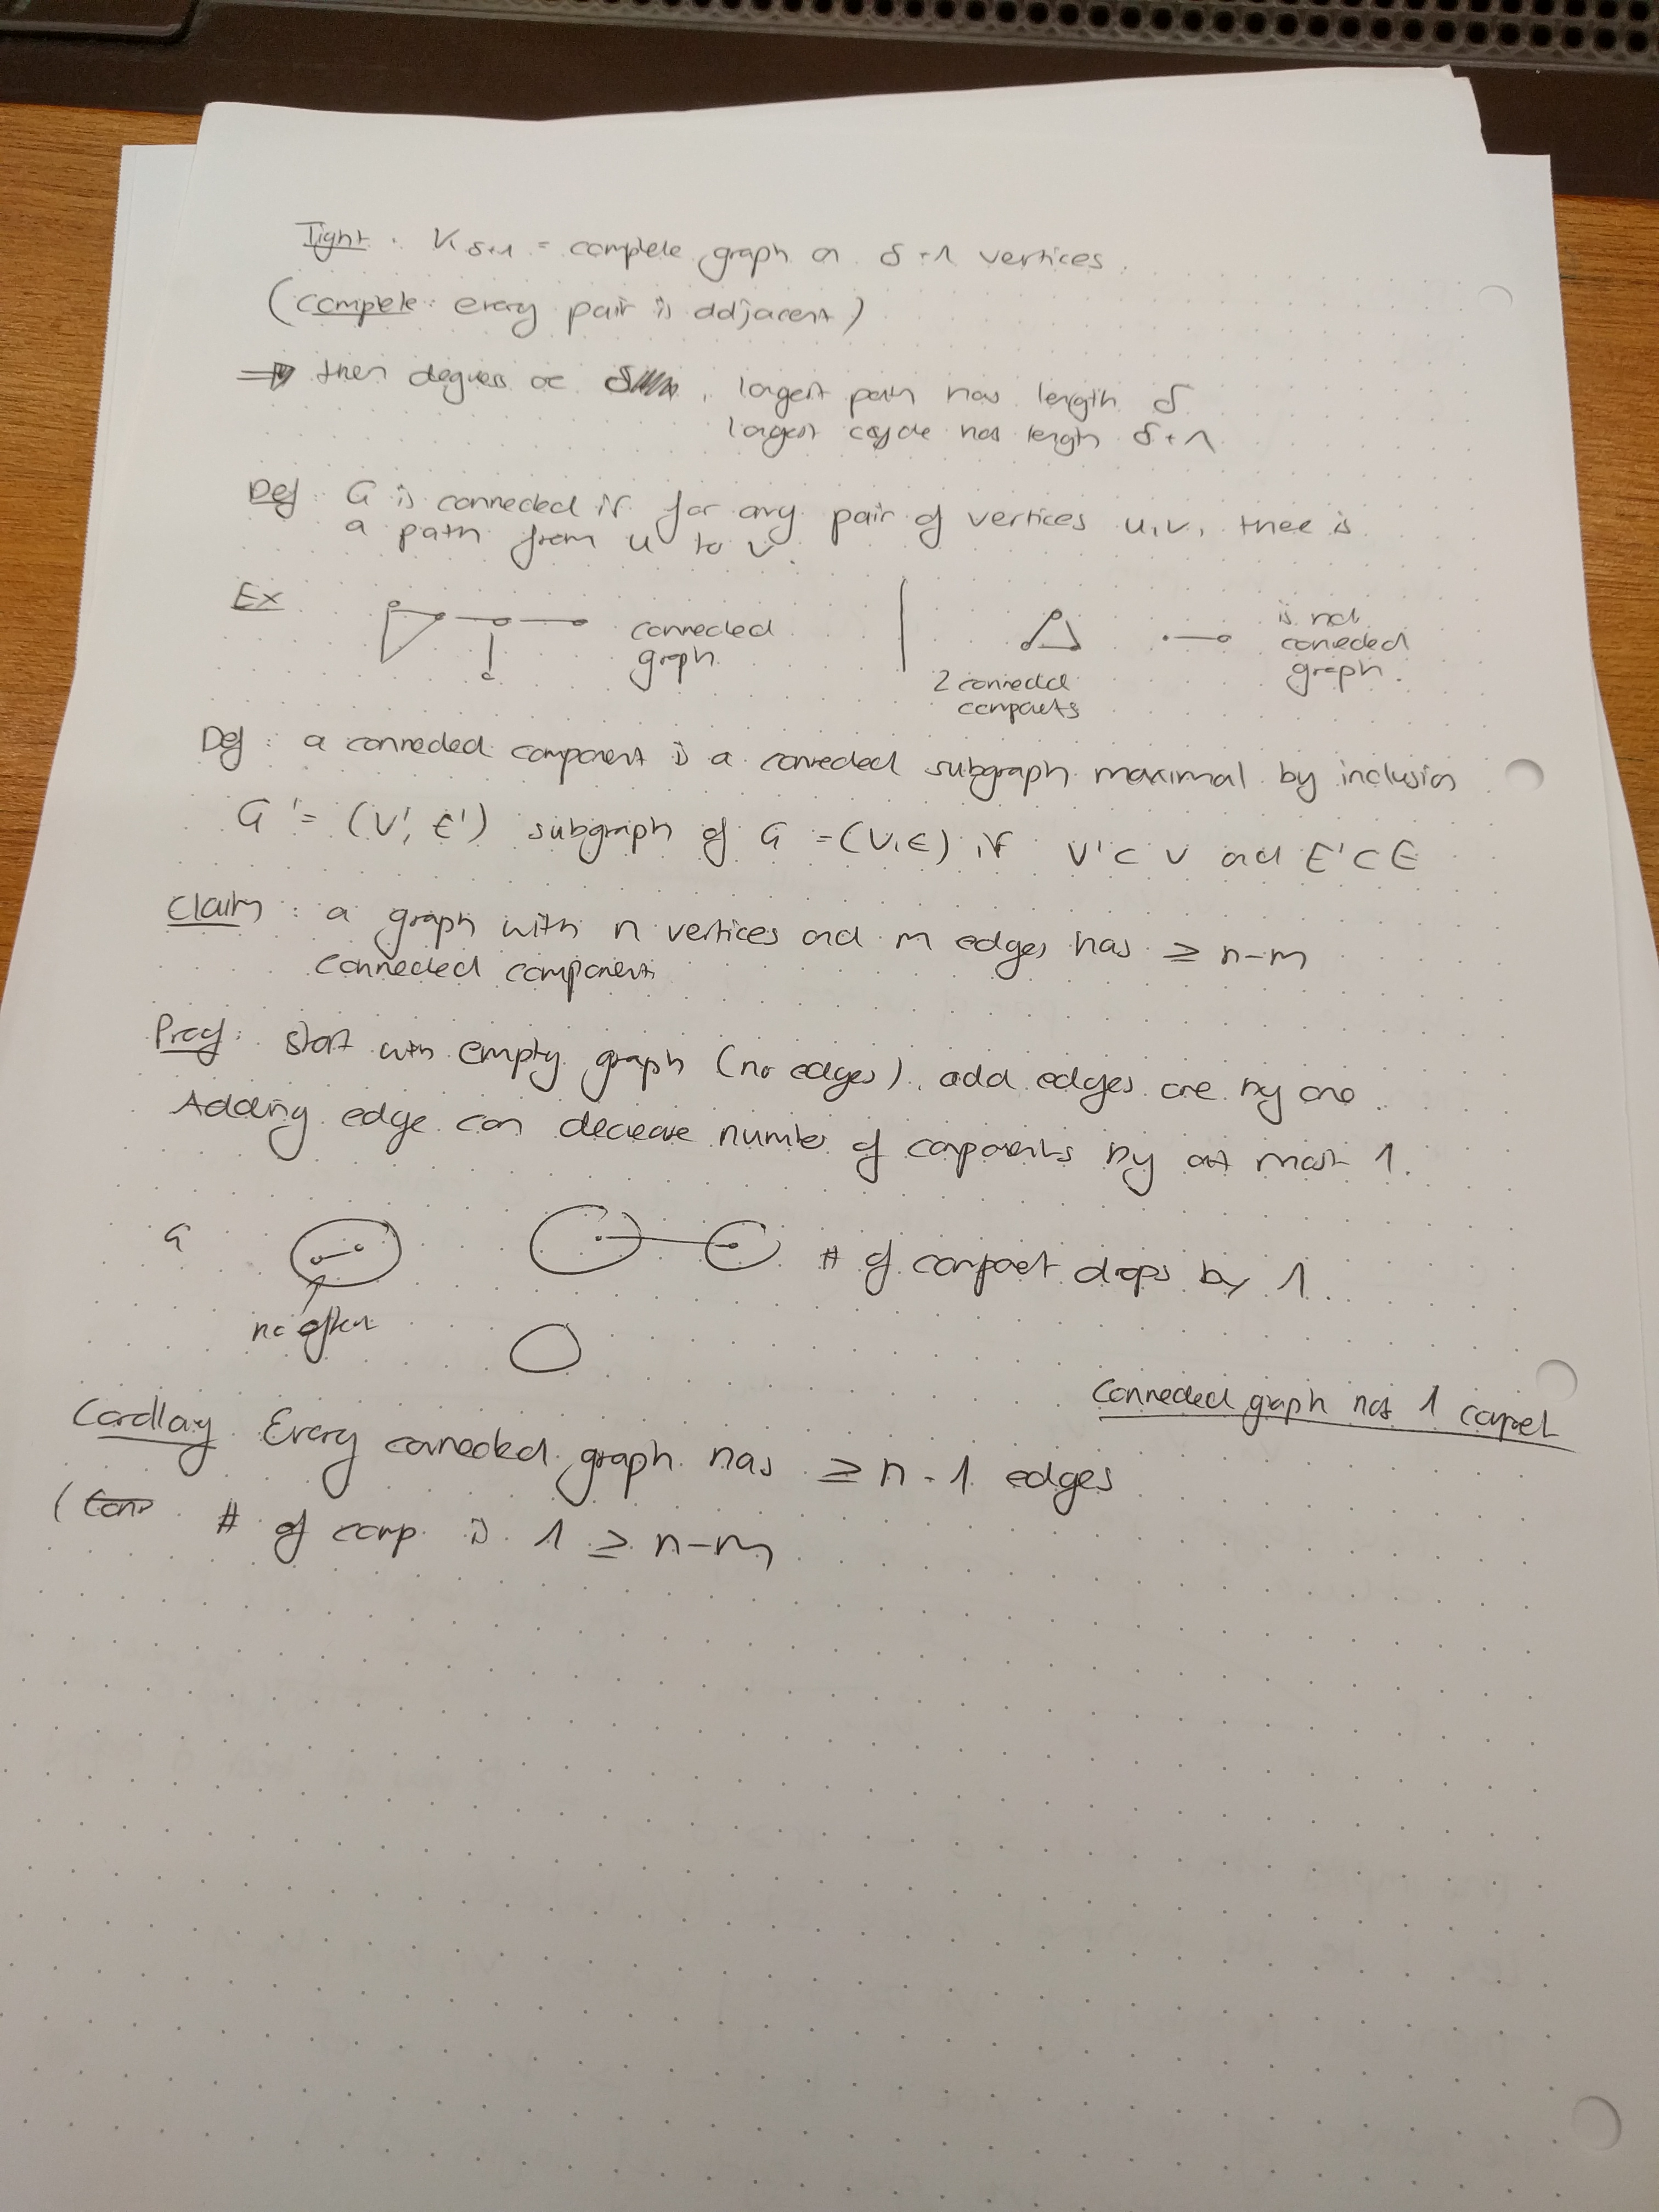 Tight: K δ+1 = complete graph on δ+1 vertices.
(complete: every pair is adjacent)
⇒ then degrees are δ, longest path has length δ
longest cycle has length δ+1
Def: G is connected if for any pair of vertices u,v, there is
a path from u to v.
Ex
connected
graph
2 connected
components
is not
connected
graph.
Def: a connected component is a connected subgraph maximal by inclusion
G' = (V', E') subgraph of G = (V,E) if V' ⊂ V and E' ⊂ E
Claim: a graph with n vertices and m edges has ≥ n-m
connected component
Proof: Start with empty graph (no edges), add edges one by one.
Adding edge can decrease number of components by at most 1.
G
# of component drops by 1.
no effect
Connected graph has 1 compnet
Corollary Every connected graph has ≥ n-1 edges
( # of comp. is 1 ≥ n-m